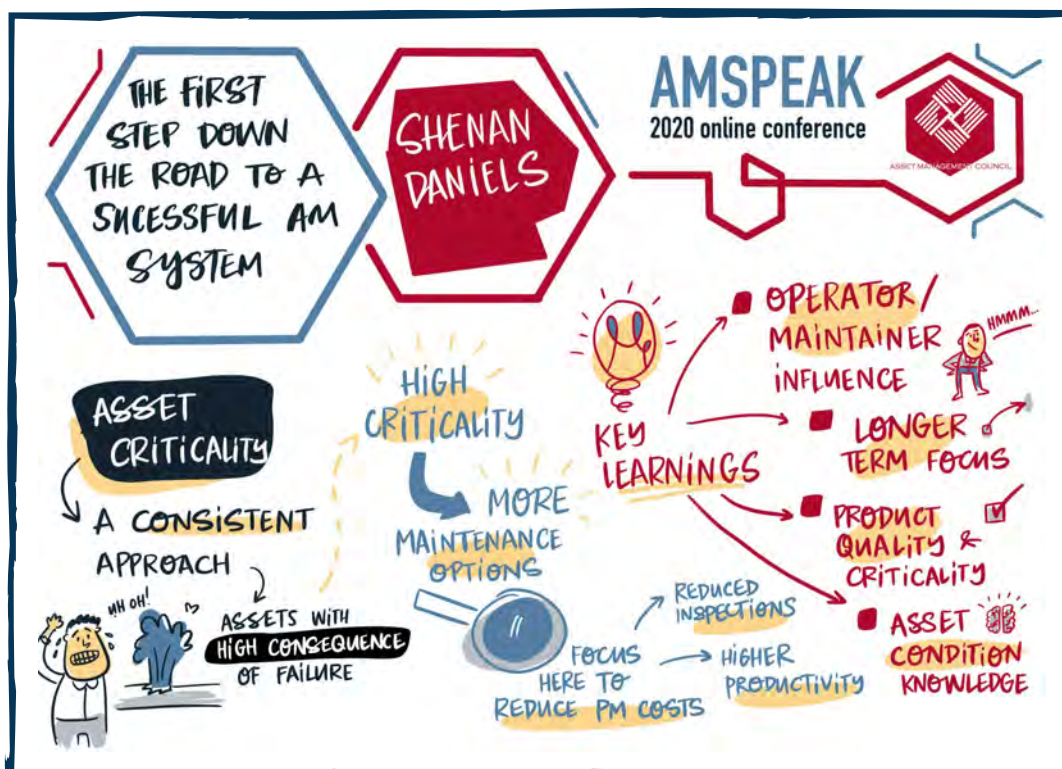 THE FIRST
STEP DOWN
THE ROAD TO A
SUCESSFUL AM
SYSTEM
SHENAN
DANIELS
AMSPEAK
2020 online conference
ASSET MANAGEMENT COUNCIL
ASSET
CRITICALITY
A CONSISTENT
APPROACH
UH OH!
ASSETS WITH
HIGH CONSEQUENCE
OF FAILURE
HIGH
CRITICALITY
MORE
MAINTENANCE
OPTIONS
FOCUS
HERE TO
REDUCE PM COSTS
REDUCED
INSPECTIONS
HIGHER
PRODUCTIVITY
KEY
LEARNINGS
OPERATOR/
MAINTAINER
INFLUENCE
HMMM...
LONGER
TERM FOCUS
PRODUCT
QUALITY &
CRITICALITY
ASSET
CONDITION
KNOWLEDGE